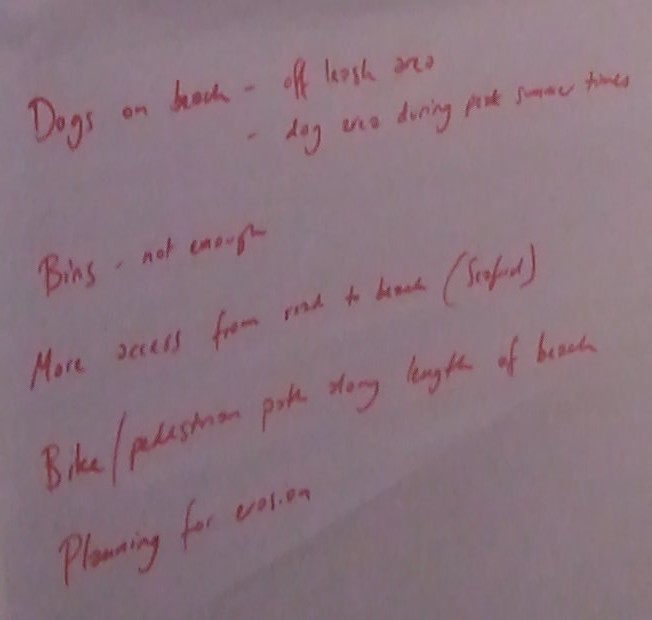 Dogs on beach - off leash area
- dog area during peak summer times
Bins - not enough
More access from road to beach (Seaford)
Bike/pedestrian path along length of beach
Planning for erosion